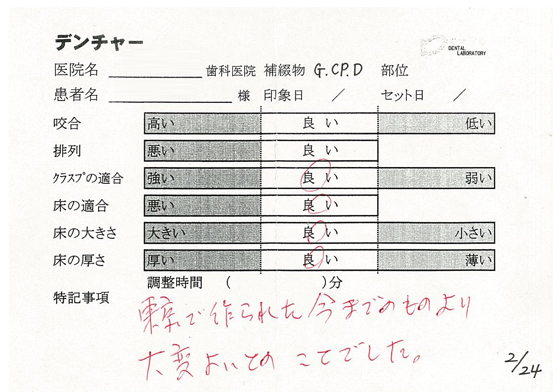 デンチャー
DENTAL
LABORATORY
医院名 歯科医院 補綴物 G.CP.D 部位
患者名 様 印象日 / セット日 /
咬合 高い 良い 低い
排列 悪い 良い
クラスプの適合 強い 良い 弱い
床の適合 悪い 良い
床の大きさ 大きい 良い 小さい
床の厚さ 厚い 良い 薄い
調整時間 ( )分
特記事項
東京で作られた今までのものより
大変よいとの ことでした。
2/24